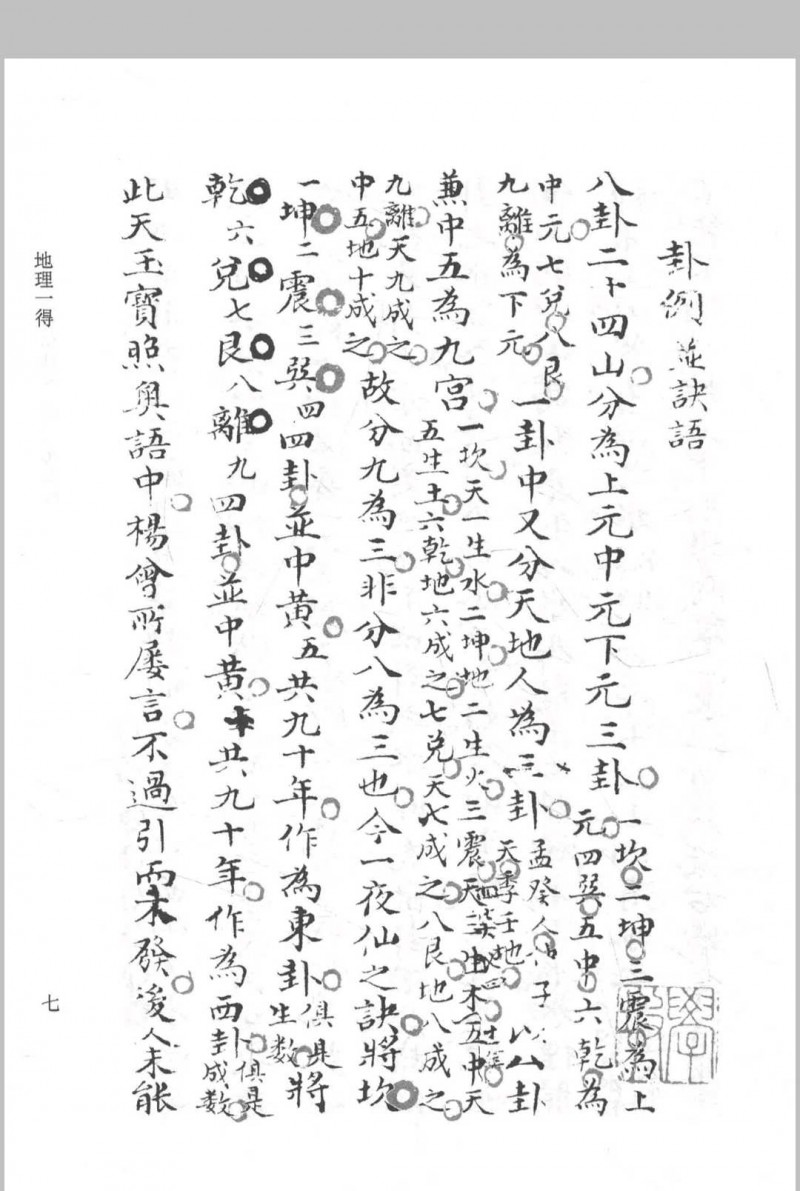 卦例並訣語
八卦二十四山分為上元中元下元三卦一坎二坤三震為上
元四巽五中六乾為
中元七兌八艮
九離為下元一卦中又分天地人為三卦
天季壬地
以八卦
兼中五為九宮一坎天一生水二坤地二生火三震天三生木
五中天
五生土六乾地六成之七兌天七成之八艮地八成之
九離天九成之
中五地十成之故分九為三非分八為三也今一夜仙之訣將坎
一坤二震三巽四四卦並中黃五共九十年作為東卦俱是
生數將
乾六兌七艮八離九四卦並中黃十共九十年作為西卦俱是
成數
此天玉寶照奧語中楊曾所屢言不過引而未發後人未能
地理一得
七